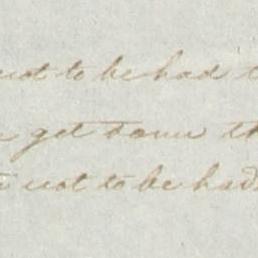 not to be had
get down th
not to be had